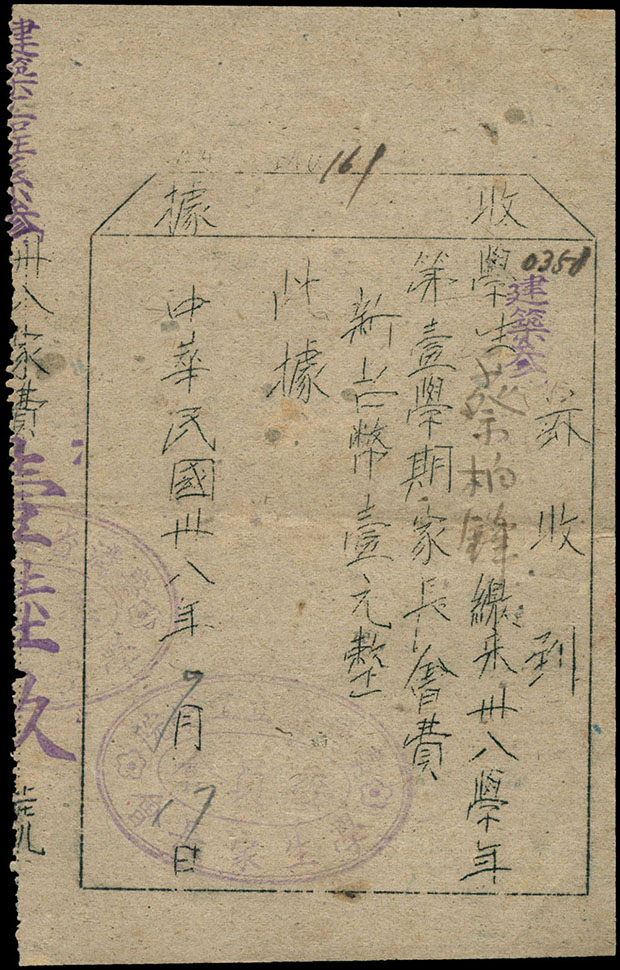 161
收據
0358
建築叁
茲收到
學生蔡柏鋒繳來卅八學年
第壹學期家長會費
新台幣壹元整
此據
中華民國卅八年9月17日
學生家長會
建築工程系叁
卅八家費
壹陸玖